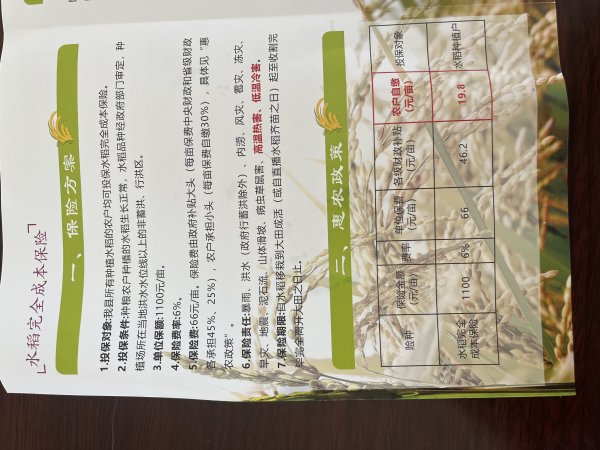 水稻完全成本保险
一、保险方案
1.投保对象:我县所有种植水稻的农户均可投保水稻完全成本保险。
2.投保条件:种粮农户种植的水稻生长正常，水稻品种经政府部门审定，种
植场所在当地洪水水位线以上的非蓄洪、行洪区。
3.单位保额:1100元/亩。
4.保险费率:6%。
5.保险费:66元/亩。保险费由政府补贴大头（每亩保费中央财政和省级财政
各承担45%、25%），农户承担小头（每亩保费自缴30%），具体见“惠
农政策”。
6.保险责任:暴雨、洪水（政府行蓄洪除外）、内涝、风灾、雹灾、冻灾、
旱灾、地震、泥石流、山体滑坡、病虫草鼠害、高温热害、低温冷害。
7.保险期限:自水稻移栽到大田成活（或自直播水稻齐苗之日）起至收割完
毕完全离开大田之日止。
二、惠农政策
险种 保险金额 费率 单位保费（元/亩） 各级财政补贴（元/亩） 农户自缴（元/亩） 投保对象
水稻完全成本保险 1100 6% 66 46.2 19.8 水稻种植户